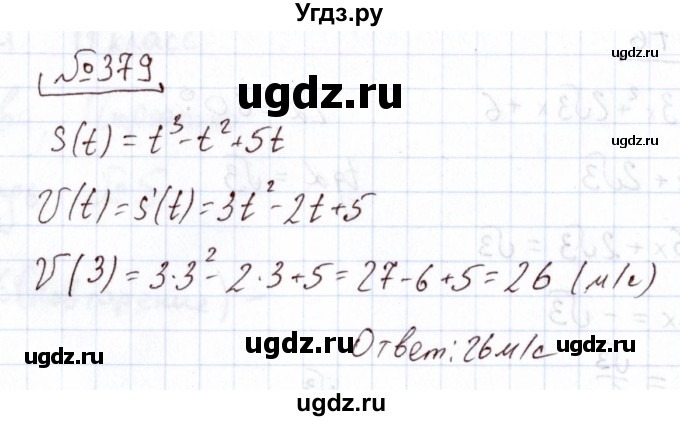 Угдз.ру
ugdz.ru
№379
ugdz.ru
S(t) = t³ - t² + 5t
ugdz.ru
V(t) = S'(t) = 3t² - 2t + 5
V(3) = 3·3² - 2·3 + 5 = 27 - 6 + 5 = 26 (м/с)
Ответ: 26 м/с
ugdz.ru
ugdz.ru
ugdz.ru
ugdz.ru